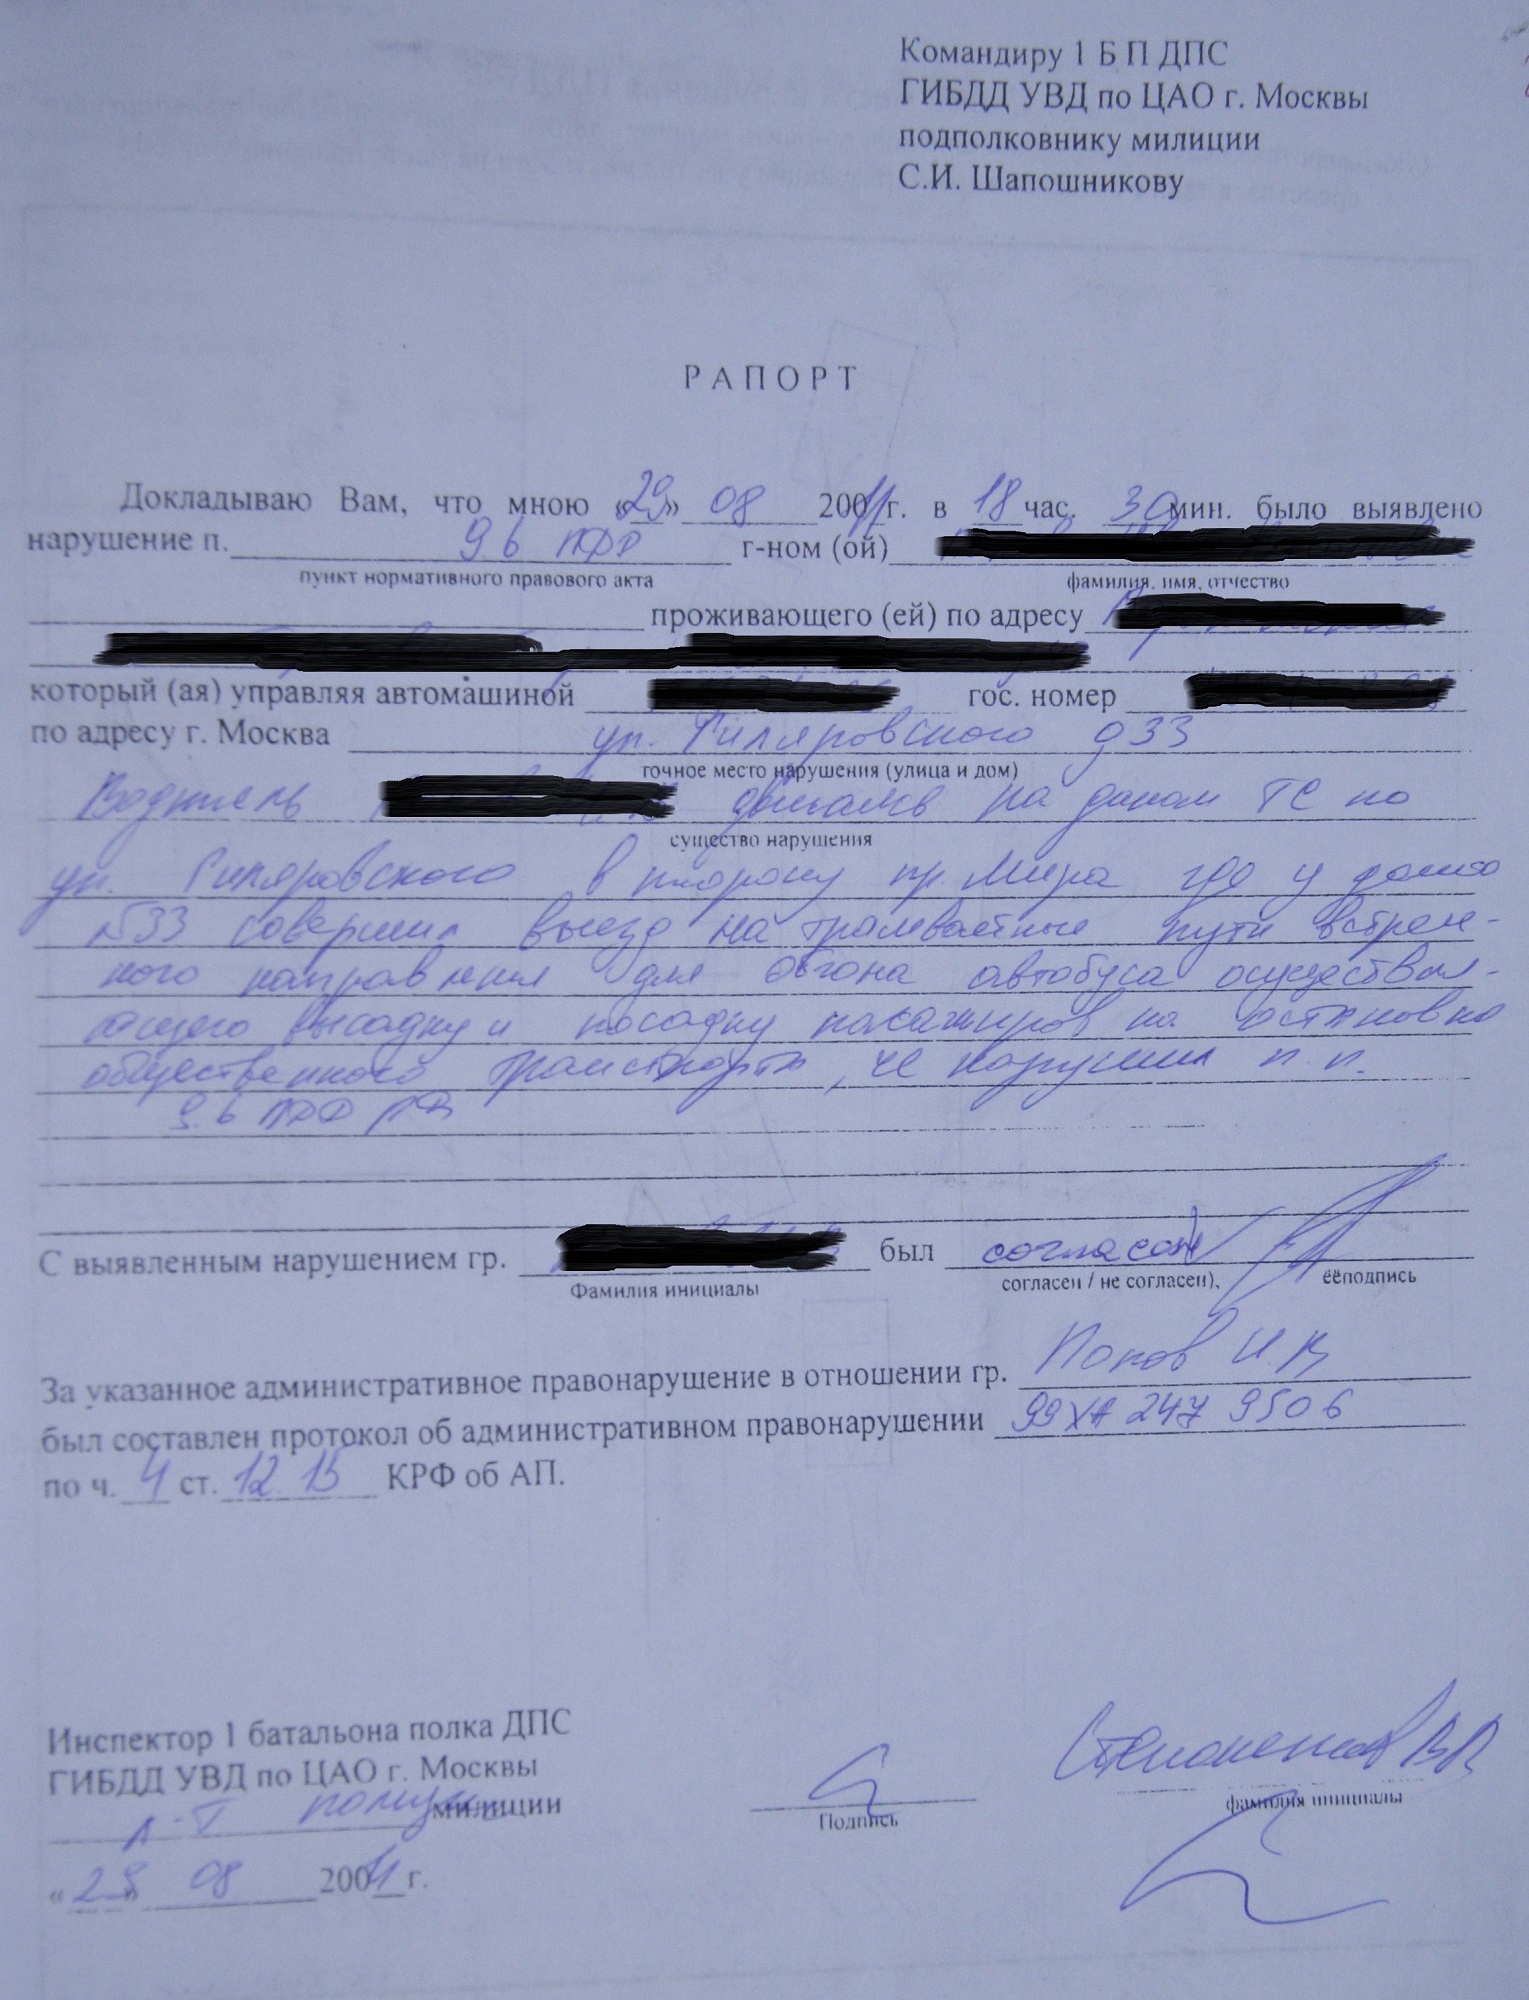 Командиру 1 Б П ДПС
ГИБДД УВД по ЦАО г. Москвы
подполковнику милиции
С.И. Шапошникову
РАПОРТ
Докладываю Вам, что мною «29» 08 20011г. в 18 час. 30 мин. было выявлено
нарушение п. 9.6 ПДД г-ном (ой)
пункт нормативного правового акта фамилия, имя, отчество
проживающего (ей) по адресу
который (ая) управляя автомашиной гос. номер
по адресу г. Москва ул. Гиляровского д33
точное место нарушения (улица и дом)
Водитель двигался на даном ТС по
существо нарушения
ул. Гиляровского в сторону пр. Мира где у дома
№33 совершил выезд на трамвайные пути встреч-
ного направления для обгона автобуса осуществля-
ющего высадку и посадку пасажиров на остановке
общественного транспорта, че нарушил п.п.
9.6 ПДД РФ
С выявленным нарушением гр. был согласен
Фамилия инициалы согласен / не согласен), её подпись
За указанное административное правонарушение в отношении гр. Попов И.В
был составлен протокол об административном правонарушении 99ХА 247 9506
по ч. 4 ст. 12.15 КРФ об АП.
Инспектор 1 батальона полка ДПС
ГИБДД УВД по ЦАО г. Москвы
л-т полиции милиции
Подпись фамилия инициалы
«29» 08 20011 г.